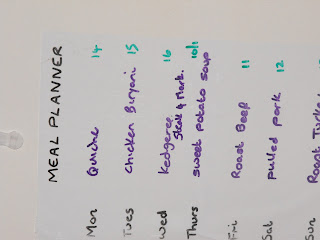 MEAL PLANNER
Mon Quiche 14
Tues Chicken Buryani 15
Wed Kedgeree 16
Steak & Mark.
Thurs sweet potato soup 10/1
Fri Roast Beef 11
Sat pulled pork 12
Sun Roast Turkey